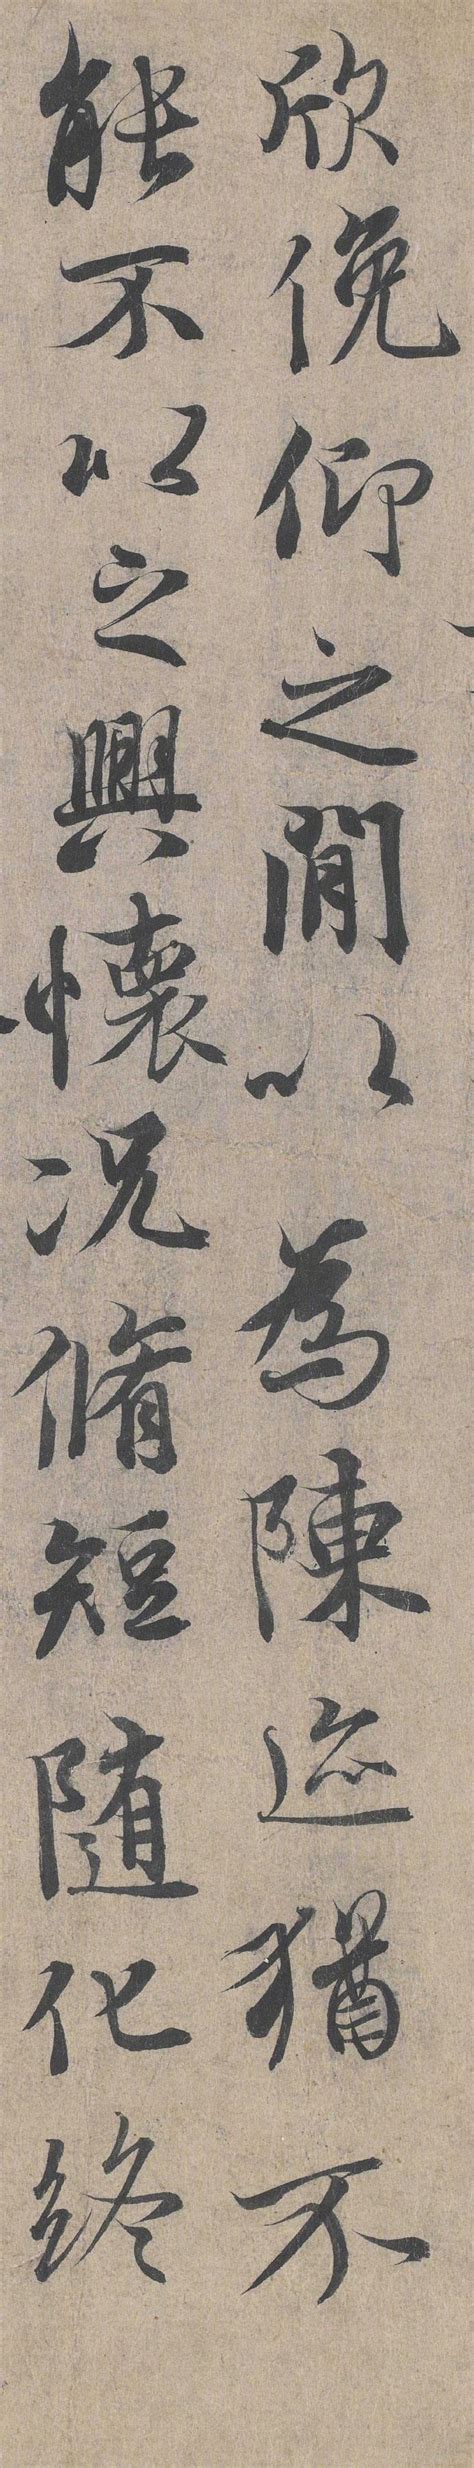 欣俛仰之間以為陳迹猶不
能不以之興懷況脩短隨化終